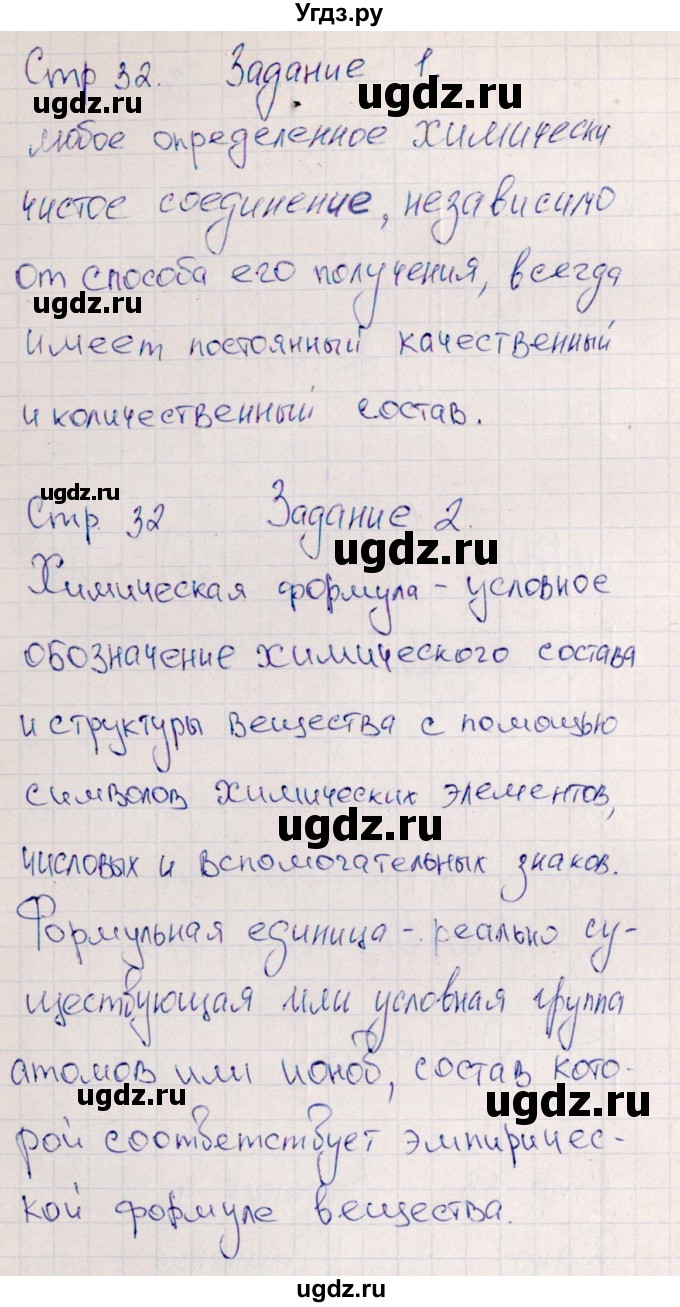 Угдз.ру
Стр 32. Задание 1.
ugdz.ru ugdz.ru
любое определенное химически
чистое соединение, независимо
от способа его получения, всегда
ugdz.ru
имеет постоянный качественный
и количественный состав.
ugdz.ru
Стр 32 Задание 2.
ugdz.ru
Химическая формула - условное
обозначение химического состава
и структуры вещества с помощью
символов химических элементов,
ugdz.ru
числовых и вспомогательных знаков.
Формульная единица - реально су-
ществующая или условная группа
атомов или ионов, состав кото-
ugdz.ru ugdz.ru
рой соответствует эмпиричес-
кой формуле вещества.
ugdz.ru